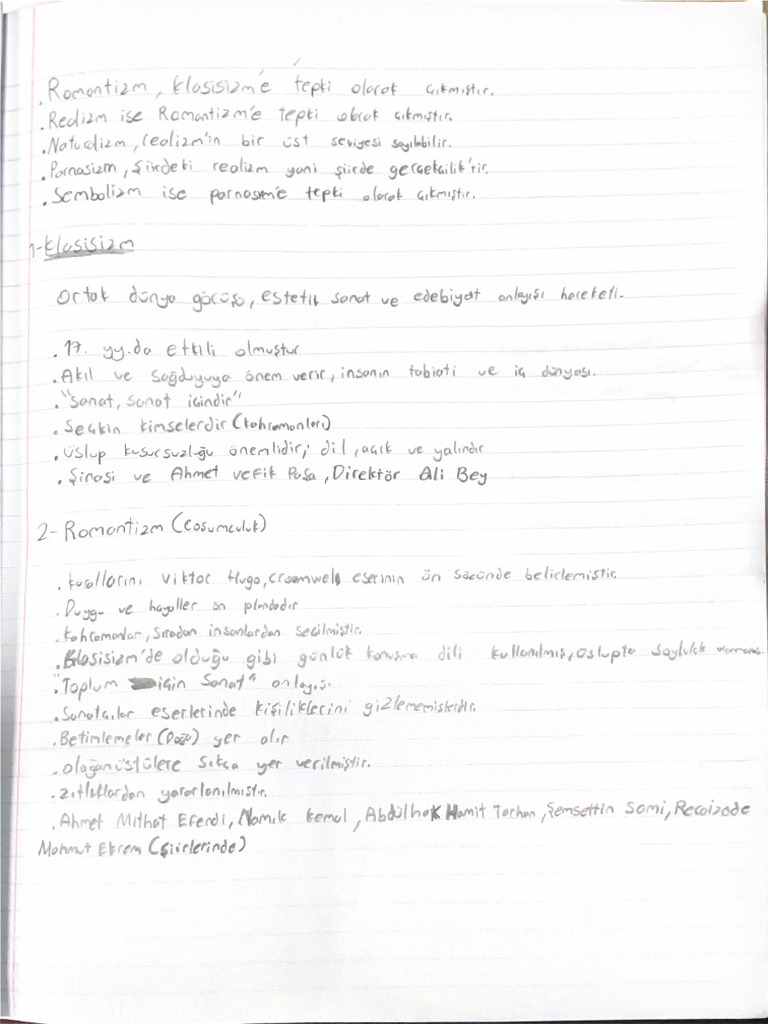 .Romantizm, klasisizm'e tepki olarak çıkmıştır.
.Realizm ise Romantizm'e tepki olarak çıkmıştır.
.Naturalizm, realizm'in bir üst seviyesi sayılabilir.
.Parnasizm, Şiirdeki realizm yani şiirde gerçekçilik'tir.
.Sembolizm ise parnasizm'e tepki olarak çıkmıştır.
1-Klasisizm
Ortak dünya görüşü, estetik sanat ve edebiyat anlayışı hareketi.
.17. yy.da etkili olmuştur
.Akıl ve sağduyuya önem verir, insanın tabiati ve iç dünyası.
."Sanat, sanat içindir"
.Seçkin kimselerdir (kahramanları)
.Üslup kusursuzluğu önemlidir; dil, açık ve yalındır
.Şinasi ve Ahmet Vefik Paşa, Direktör Ali Bey
2- Romantizm (Coşumculuk)
.kurallarını Viktor Hugo, eserinin ön sözünde belirlemiştir.
.Duygu ve hayaller ön plandadır
.Kahramanlar, sıradan insanlardan seçilmiştir.
.Klasisizm'de olduğu gibi günlük konuşma dili kullanılmış, üslupta
"Toplum için Sanat" anlayışı.
.Sanatçılar eserlerinde kişiliklerini gizlememişlerdir.
.Betimlemeler (Doğa) yer alır
.olağanüstülere sıkça yer verilmiştir.
.zıtlıklardan yararlanılmıştır.
.Ahmet Mithat Efendi, Namık kemal, Abdülhak Hamit Tarhan, Şemsettin Sami, Recaizade
Mahmut Ekrem (Şiirlerinde)